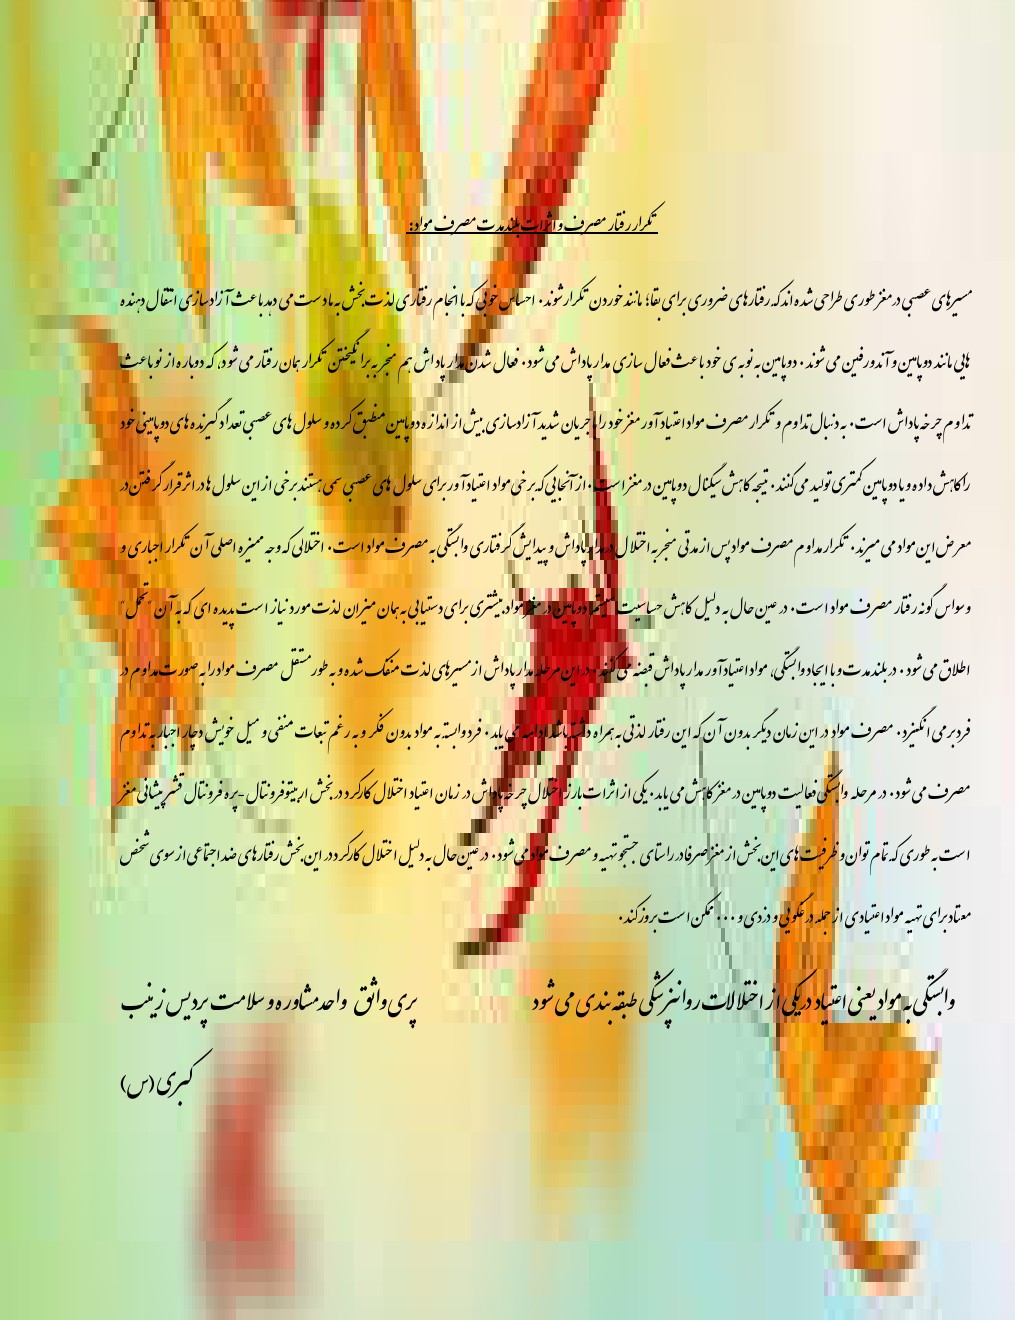 تکرار رفتار مصرف و اثرات بلندمدت مصرف مواد:
مسیرهای عصبی در مغز طوری طراحی شده اند که رفتارهای ضروری برای بقا؛ مانند خوردن تکرار شوند. احساس خوبی که با انجام رفتاری لذت بخش به ما دست می دهد باعث آزادسازی انتقال دهنده
هایی مانند دوپامین و آندورفین می شوند. دوپامین به نوبه ی خود باعث فعال سازی مدار پاداش می شود. فعال شدن مدار پاداش هم منجر به برانگیختن تکرار همان رفتار می شود، که دوباره از نو باعث
تداوم چرخه پاداش است. به دنبال تداوم و تکرار مصرف مواد اعتیاد آور مغز خود را با جریان شدید آزادسازی بیش از اندازه دوپامین منطبق کرده و سلول های عصبی تعداد گیرنده های دوپامینی خود
را کاهش داده و یا دوپامین کمتری تولید می کنند. نتیجه کاهش سیگنال دوپامین در مغز است. از آنجایی که برخی مواد اعتیادآور برای سلول های عصبی سمی هستند برخی از این سلول ها در اثر قرار گرفتن در
معرض این مواد می میرند. تکرار مداوم مصرف مواد پس از مدتی منجر به اختلال در مدار پاداش و پیدایش گرفتاری وابستگی به مصرف مواد است. اختلالی که وجه ممیزه اصلی آن تکرار اجباری و
وسواس گونه رفتار مصرف مواد است. در عین حال به دلیل کاهش حساسیت سیستم دوپامین در مغز مواد بیشتری برای دستیابی به همان میزان لذت مورد نیاز است پدیده ای که به آن "تحمل"
اطلاق می شود. در بلند مدت و با ایجاد وابستگی، مواد اعتیادآور مدار پاداش قبضه می کنند. در این مرحله مدار پاداش از مسیرهای لذت منفک شده و به طور مستقل مصرف مواد را به صورت مداوم در
فرد بر می انگیزد. مصرف مواد در این زمان دیگر بدون آن که این رفتار لذتی به همراه داشته باشد ادامه می یابد. فرد وابسته به مواد بدون فکر و به رغم تبعات منفی و میل خویش دچار اجبار به تداوم
مصرف می شود. در مرحله وابستگی فعالیت دوپامین در مغز کاهش می یابد. یکی از اثرات بارز اختلال چرخه پاداش در زمان اعتیاد اختلال کارکرد در بخش اربیتوفرونتال-پره فرونتال قشر پیشانی مغز
است به طوری که تمام توان و ظرفیت های این بخش از مغز صرفا در راستای جستجو تهیه و مصرف مواد می شود. در عین حال به دلیل اختلال کارکرد در این بخش رفتارهای ضد اجتماعی از سوی شخص
معتاد برای تهیه مواد اعتیادی از جمله دروغگویی و دزدی و ... ممکن است بروز کند.
وابستگی به مواد یعنی اعتیاد در یکی از اختلالات روانپزشکی طبقه بندی می شود پری واثق واحد مشاوره و سلامت پردیس زینب
کبری (س)